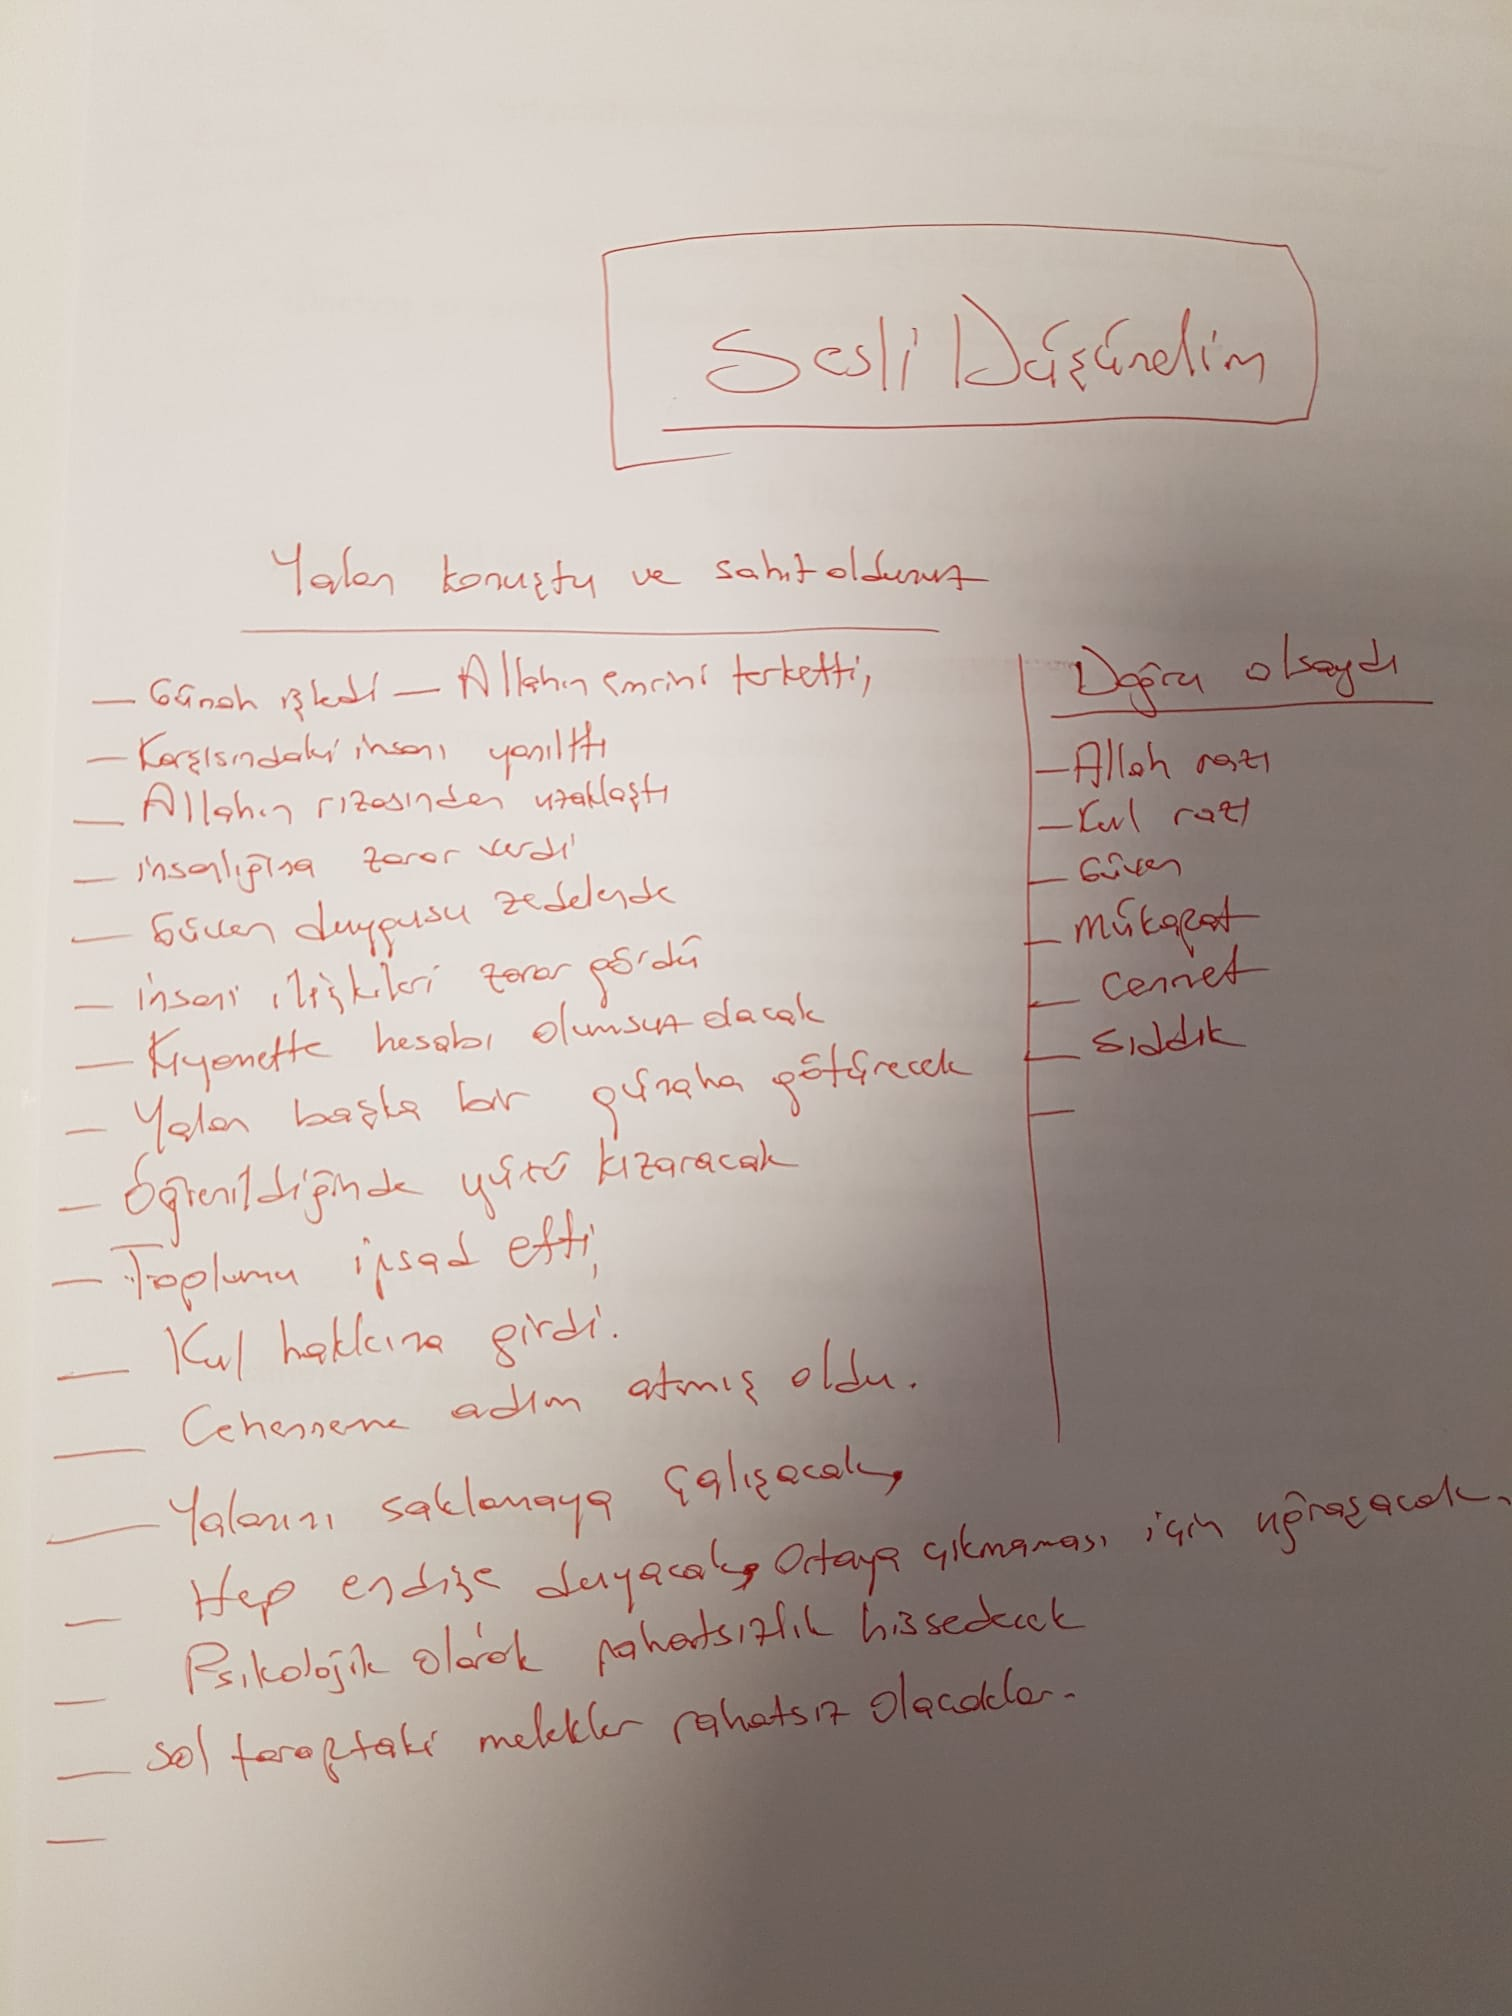 Sesli Düşünelim
Yalan konuştu ve şahit oldunuz
– Günah işledi – Allahın emrini terketti,
– Karşısındaki insanı yanılttı
– Allahın rızasından uzaklaştı
– insanlığına zarar verdi
– Güven duygusu zedelendi
– insani ilişkileri zarar gördü
– Kıyamette hesabı olumsuz olacak
– Yalan başka bir günaha götürecek
– Öğrenildiğinde yüzü kızaracak
– Toplumu ifsad etti,
– Kul hakkına girdi.
– Cehenneme adım atmış oldu.
– Yalanını saklamaya çalışacak,
– Hep endişe duyacak, Ortaya çıkmaması için uğraşacak.
– Psikolojik olarak rahatsızlık hissedecek
– Sol taraftaki melekler rahatsız olacaklar.
–
Doğru olsaydı
– Allah razı
– Kul razı
– Güven
– mükafat
– cennet
– sıddık
–